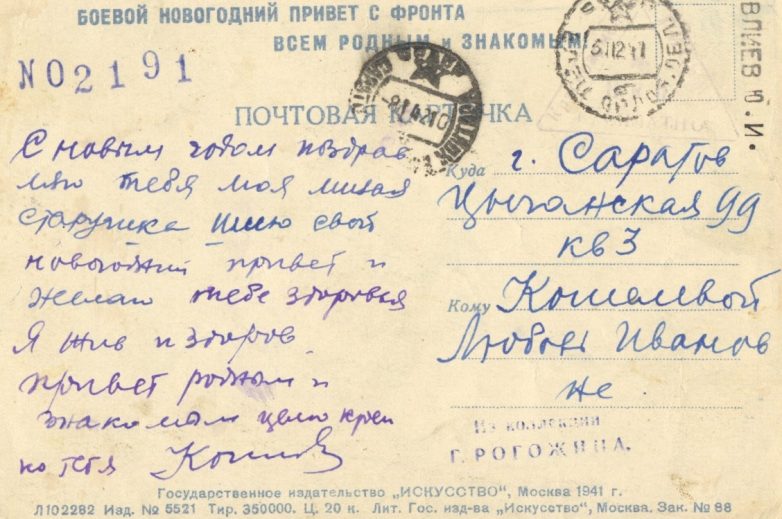 БОЕВОЙ НОВОГОДНИЙ ПРИВЕТ С ФРОНТА
ВСЕМ РОДНЫМ и ЗНАКОМЫМ!
NO2191
ПОЧТОВАЯ КАРТОЧКА
С новым годом поздрав
ляю тебя моя милая
старушка шлю свой
новогодний привет и
желаю тебе здоровья
Я жив и здоров
привет родным и
знакомым целую креп
ко тебя
Куда г. Саратов
Цыганская 99
кв 3
Кому Кошелевой
Любовь Иванов
не
Из коллекции
Г. РОГОЖИНА.
ВЛИЕВ Ю. И.
Государственное издательство „ИСКУССТВО", Москва 1941 г.
Л102282 Изд. № 5521 Тир. 350000. Ц. 20 к. Лит. Гос. изд-ва „Искусство", Москва. Зак. № 88